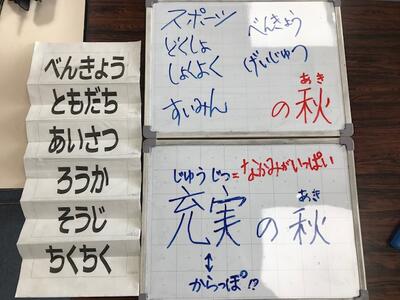 べんきょう
ともだち
あいさつ
ろうか
そうじ
ちくちく
スポーツ
どくしょ
しょくよく
すいみん
べんきょう
げいじゅつ
あき
の秋
じゅうじつ=なかみがいっぱい
あき
充実の秋
↕
からっぽ!?